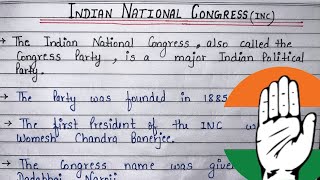 INDIAN NATIONAL CONGRESS (INC)
→ The Indian National Congress, also called the
Congress Party, is a major Indian Political
Party.
→ The Party was founded in 1885
→ The first President of the INC w
Womesh Chandra Banerjee.
→ The Congress name was give
Dadabhai Naroji